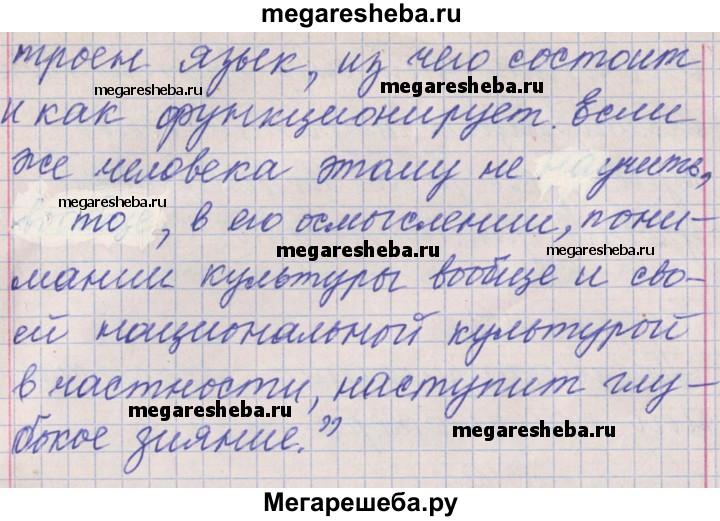 megaresheba.ru
троен язык, из чего состоит
megaresheba.ru
megaresheba.ru
и как функционирует. Если
же человека этому не научить,
megaresheba.ru
то, в его осмыслении, пони-
megaresheba.ru
megaresheba.ru
мании культуры вообще и сво-
ей национальной культурой
в частности, наступит глу-
megaresheba.ru
бокое зияние."
megaresheba.ru
Мегарешеба.ру